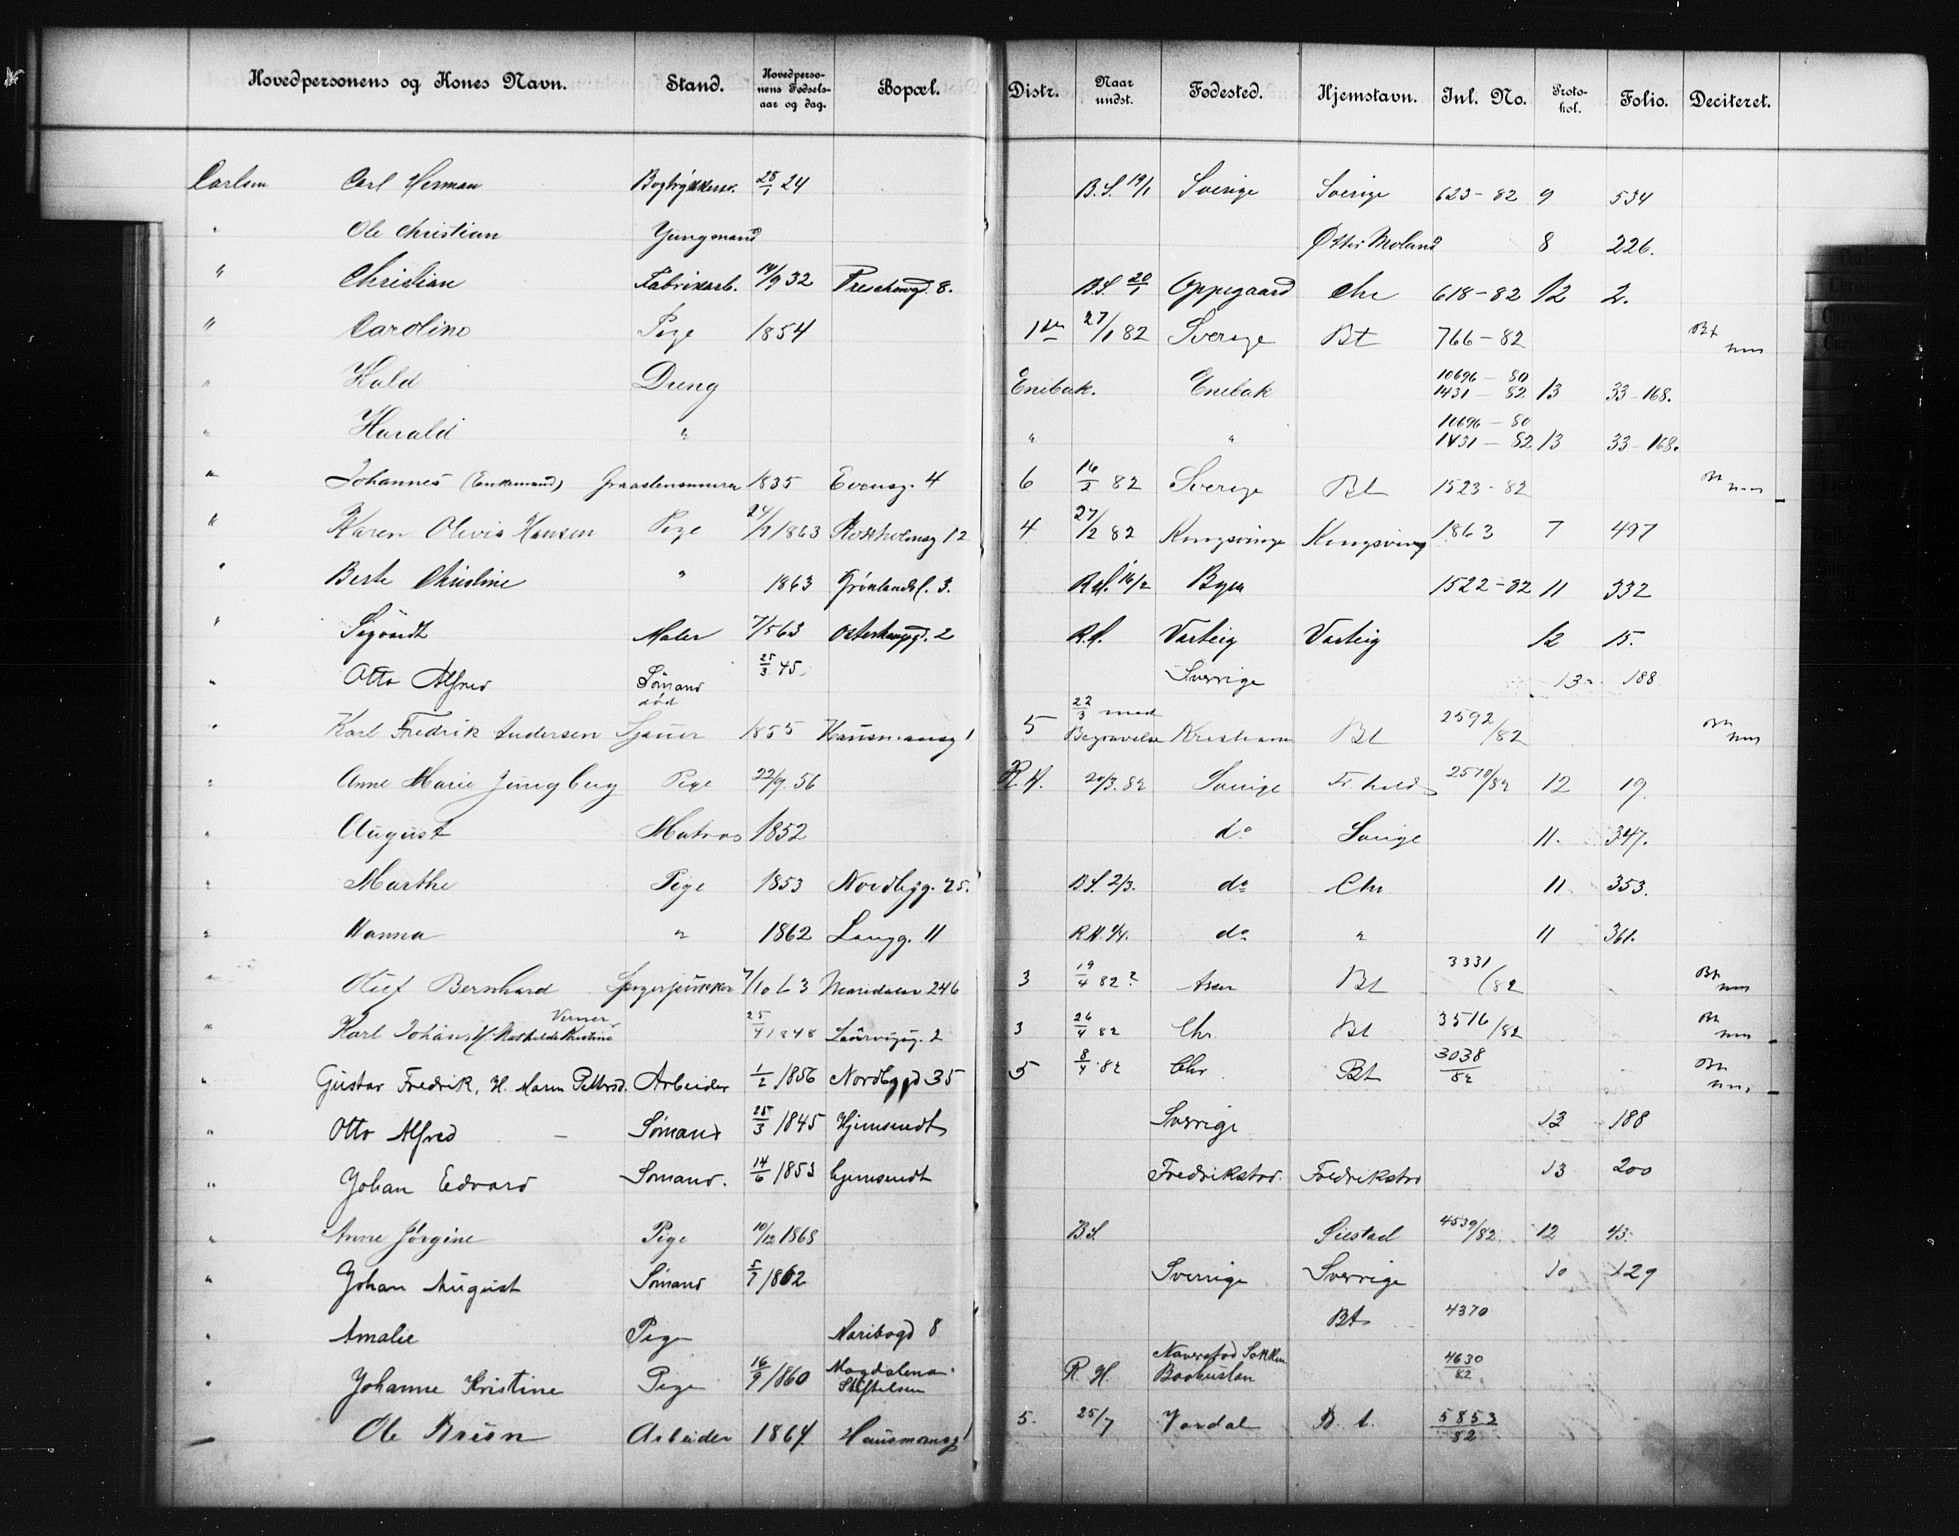 Hovedpersonens og Kones Navn. Stand. Hovedperso-nens Fødsels-aar og dag. Bopæl. Distr. Naar undst. Fødested. Hjemstavn. Inl. No. Proto-kol. Folio. Deciteret.
Carlsen Carl Herman 25/1 24 B.S. 19/1 Sverige Sverige 623-82 9 534
" Ole Christian Jungmand Østre Moland 8 226.
" Christian Fabrikarb. 14/9 32 8. B.S. 20/1 Oppegaard Chr 618-82 12 2.
" Caroline Pige 1854 1ste 27/1 82 Sverige Bt 766-82 Bt
" Hald Dreng Enebak. Enebak 10696-80 1431-82 13 33-168.
" Harald " " " 10696-80 1431-82 13 33-168.
" Johannes (Enkemand) 1835 4 6 16/2 82 Sverige Bt 1523-82
" Karen Olivia Hansen Pige 1863 12 4 27/2 82 Kongsvinge Kongsving 1863 7 497
" Berte Christine " 1863 Grønlandsl. 3. 16/2 Byen 1522-82 11 332
" Sigvardt Maler 7/5 63 2 R.H. Varteig Varteig 12 15.
" Otto Alfred Sømand død 25/3 45 Sverrige 13 188
" Karl Fredrik Andersen Sjauer 1855 Hausmansg 1 5 22/3 med Begravelse Kristiania Bt 2592/82
" Anne Marie Jungberg Pige 22/9. 56 R.H. 20/3. 82 Sverige 2570/82 12 19.
" August Matros 1852 do Sverige 11. 347.
" Marthe Pige 1853 Nordbyg. 25. B.S. 2/3. do Chr 11 353.
" Hanna " 1862 Langg. 11 R.H. do " 11 361.
" Oluf Bernhard 7/10 63 Maridalsv 246 3 19/4 82? Asker Bt 3331/82 Bt
" Karl Johan Verner, H. Mathilde Kristine 25/4 1848 Laurvigsg. 2 3 26/4 82 Chr Bt 3516/82 Bt
" Gustav Fredrik, H. Maren Pettersd. Arbeider 1/2 1856 Nordbygd 35 5 8/4 82 Chr Bt 3038/82
" Otto Alfred - Sømand 25/3 1845 Hjemsendt Sverrige 13 188
" Johan Edvard Sømand. 14/6 1853 hjemsendt Fredrikstad. Fredrikstad 13 200
" Anne Jørgine Pige 10/12 1868 B.S. 4539/82 12 43.
" Johan August Sømand 5/7 1862 Sverrige Sverrige 10 129
" Amalie Pige Maribogd 8 Bt 4370
" Johanne Kristine Pige 16/9 1860 Magdalena Stiftelsen R H. Naverstad Sokken Baahuslen 4630/82
Ole Brun Arbeider 1864. Hausmansg 1 5. 25/7 Vardal B.t. 5853/82